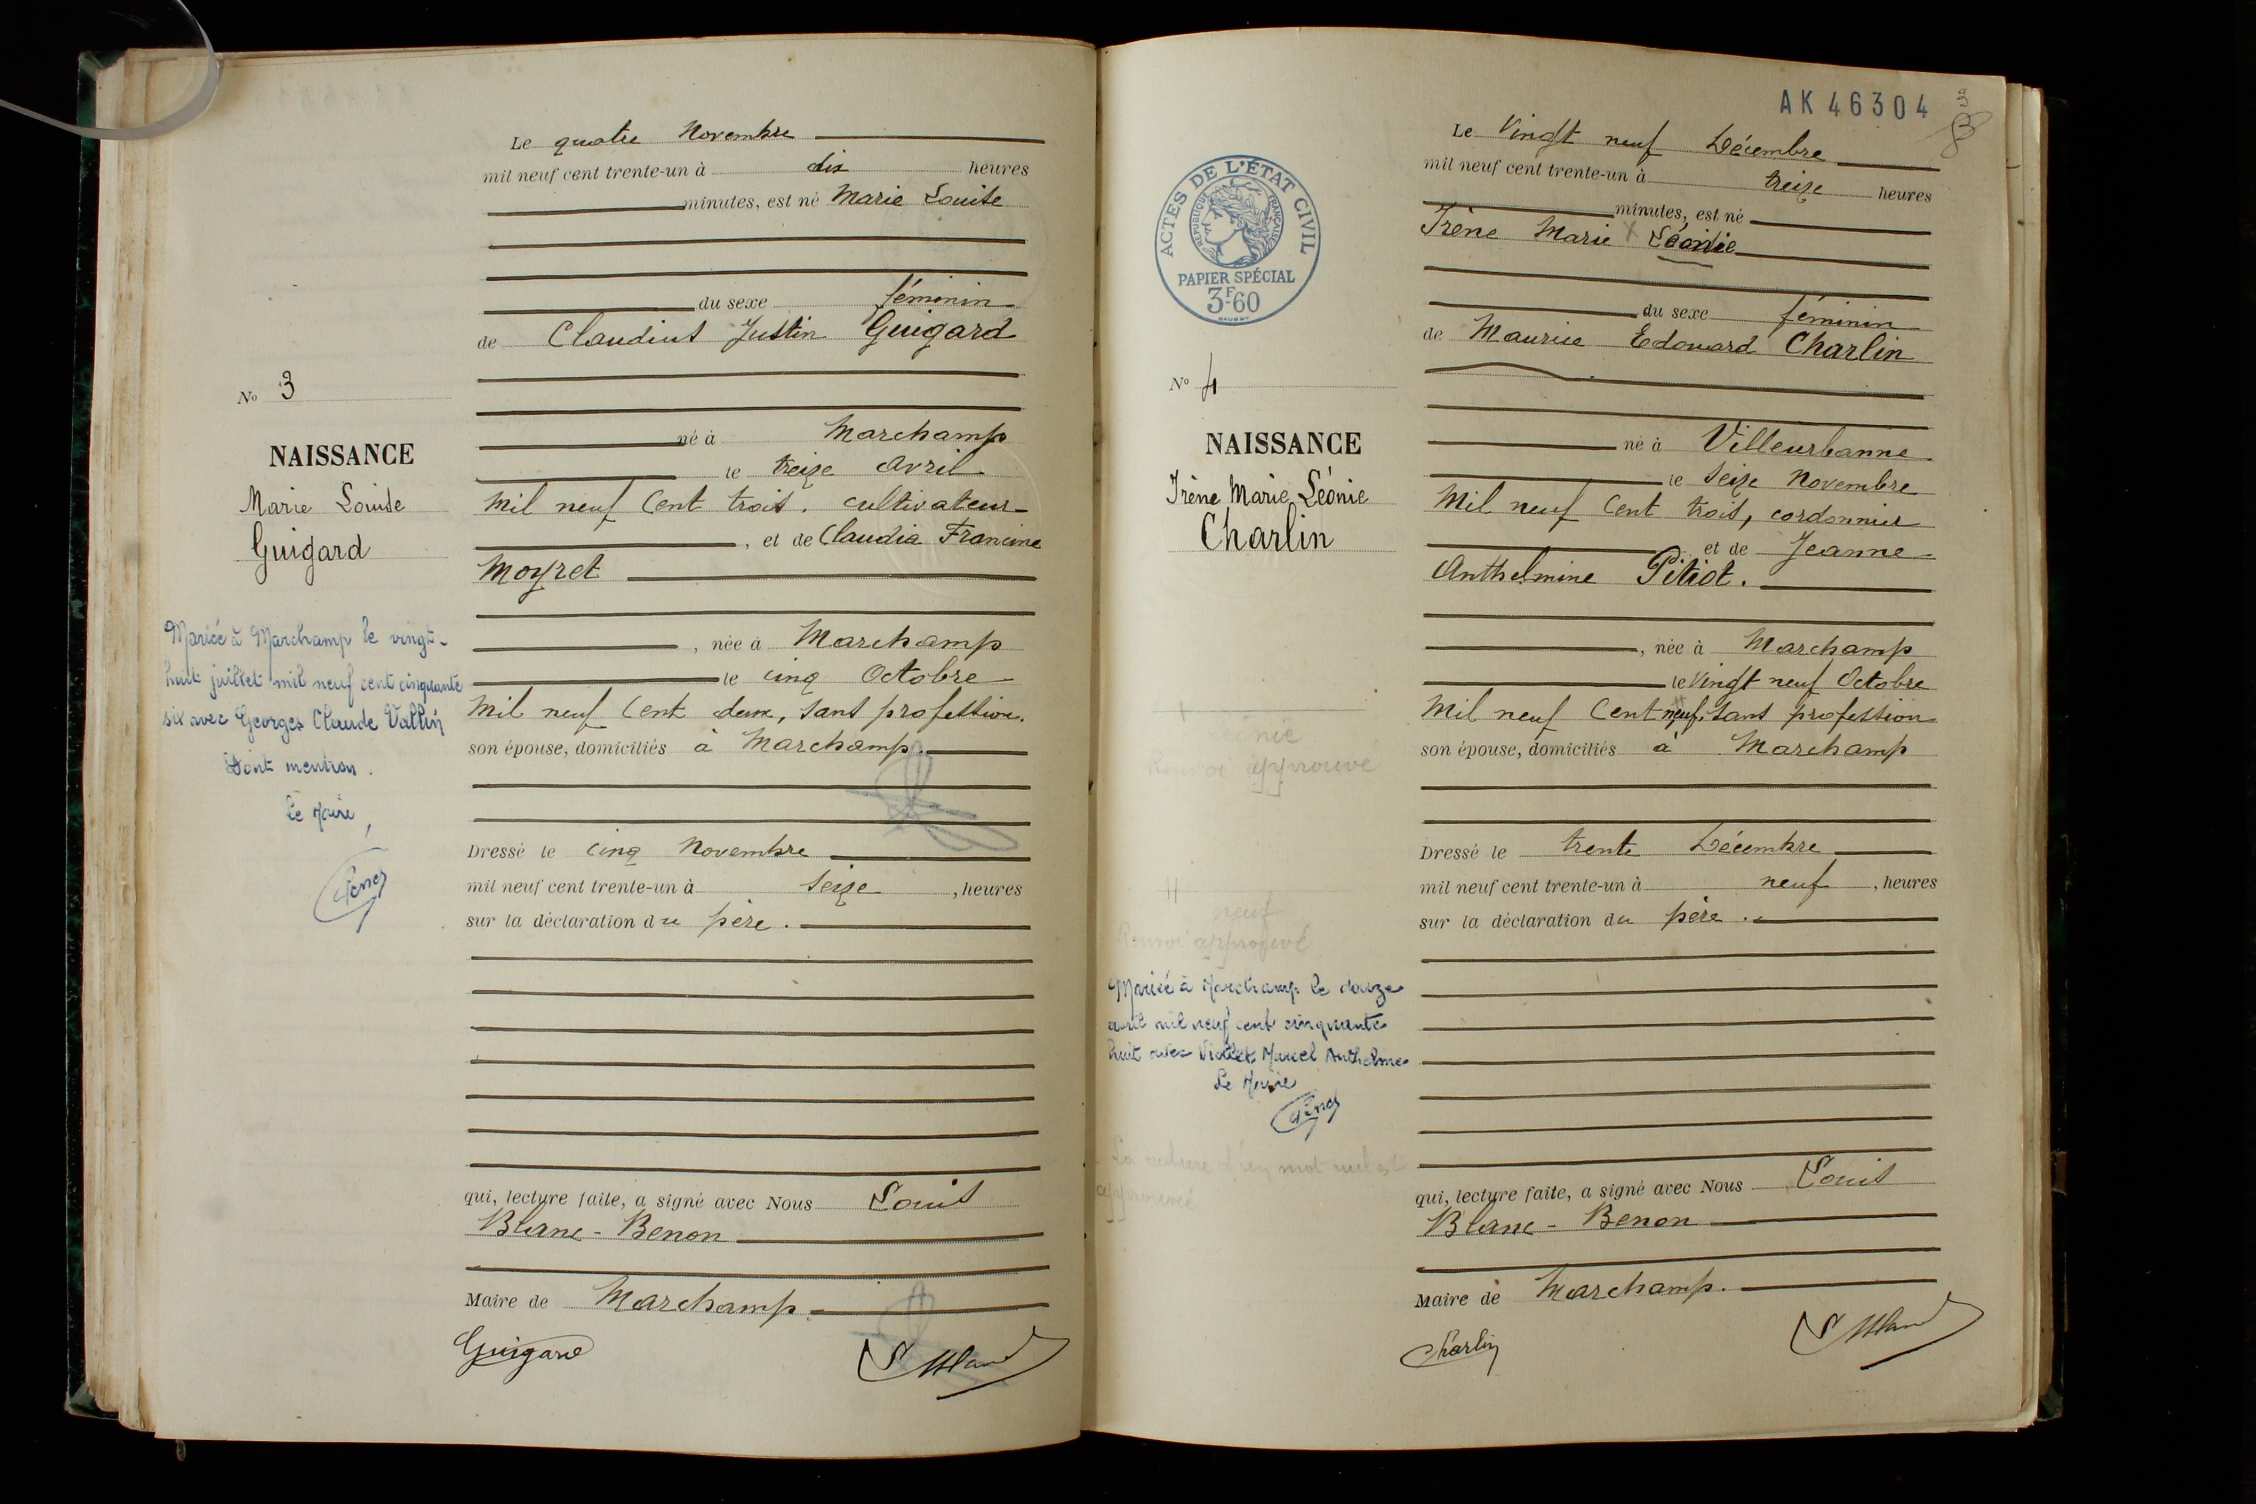 Le quatre Novembre
mil neuf cent trente-un à dix heures
minutes, est né Marie Louise
du sexe féminin
de Claudius Justin Guigard
né à Marchamp
le treize Avril
Mil neuf Cent trois. cultivateur
, et de Claudia Francine
Moyret
, née à Marchamp
le cinq Octobre
Mil neuf Cent deux, sans profession.
son épouse, domiciliés à Marchamp.
Dressé le cinq Novembre
mil neuf cent trente-un à seize, heures
sur la déclaration du père.
qui, lecture faite, a signé avec Nous Louis
Blanc-Benon
Maire de Marchamp.
Guigard
No 3
NAISSANCE
Marie Louise
Guigard
Mariée à Marchamp le vingt-
huit juillet mil neuf cent cinquante
six avec Georges Claude Vallin
Dont mention.
Le Maire,
AK 46304
ACTES DE L'ÉTAT CIVIL
RÉPUBLIQUE FRANÇAISE
PAPIER SPÉCIAL
3F-60
No 4
NAISSANCE
Irène Marie Léonie
Charlin
Léonie
Renvoi approuvé
neuf
Renvoi approuvé
Mariée à Marchamp le douze
avril mil neuf cent cinquante
huit avec Viollet Marcel Anthelme
Le Maire
La rature d'un mot nul est
approuvé
Le Vingt neuf Décembre
mil neuf cent trente-un à treize heures
minutes, est né
Irène Marie Léonie
du sexe féminin
de Maurice Edouard Charlin
né à Villeurbanne
le seize Novembre
Mil neuf Cent trois, cordonnier
et de Jeanne
Anthelmine Pitiot.
, née à Marchamp
le Vingt neuf Octobre
Mil neuf Cent neuf, sans profession
son épouse, domiciliés à Marchamp
Dressé le trente Décembre
mil neuf cent trente-un à neuf, heures
sur la déclaration du père.
qui, lecture faite, a signé avec Nous Louis
Blanc-Benon
Maire de Marchamp.
Charlin